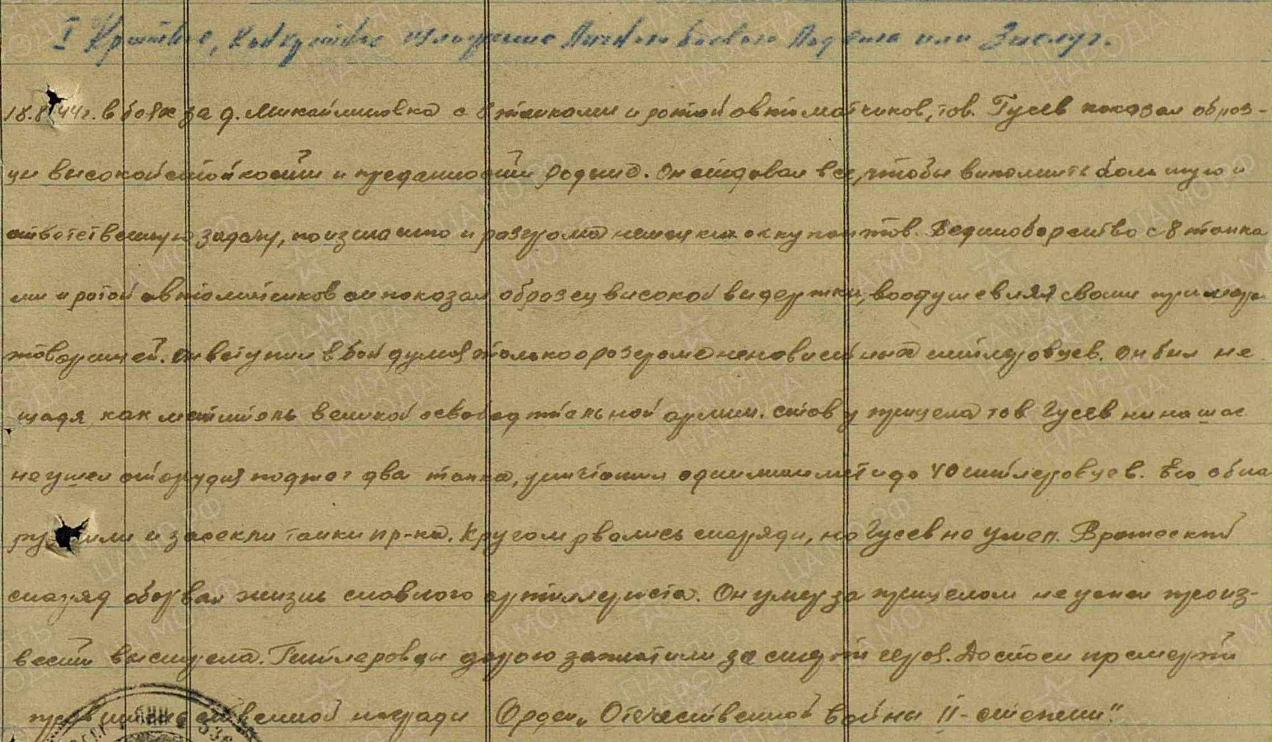 I Краткое, конкретное изложение личного боевого подвига или заслуг.
18.8.44г. в боях за д. Микайлиновка с 8 танками и ротой автоматчиков, тов. Гусев показал образ-
ци високой стойкости и преданности родине. Он отдавал все, чтобы виполнить большую и
ответственную задачу, по изгнанию и разгрома немецких оккупантов. В единоборство с 8 танка
ми и ротой автоматчиков он показал образец високой видержки, воодушевляя своим примером
товарищей. Он вступил в бой думая только о разгроме ненавистних гитлеровцев. Он бил не
щадя, как мститель великой освободительной армии. став у прицела тов Гусев ни на шаг
не ушел от орудия поджог два танка, уничтожил один и до 40 гитлеровцев. Его обна
ружили и засекли танки пр-ка. Кругом рвались снаряди, но Гусев не ушел. Вражеский
снаряд оборвал жизнь славного артиллериста. Он умер за прицелом не успел произ-
вести выстрела. Гитлеровци дорого заплатили за смерть героя. Достоен посмертно
правительственной награди Орден "Отечественной войны II-степени".